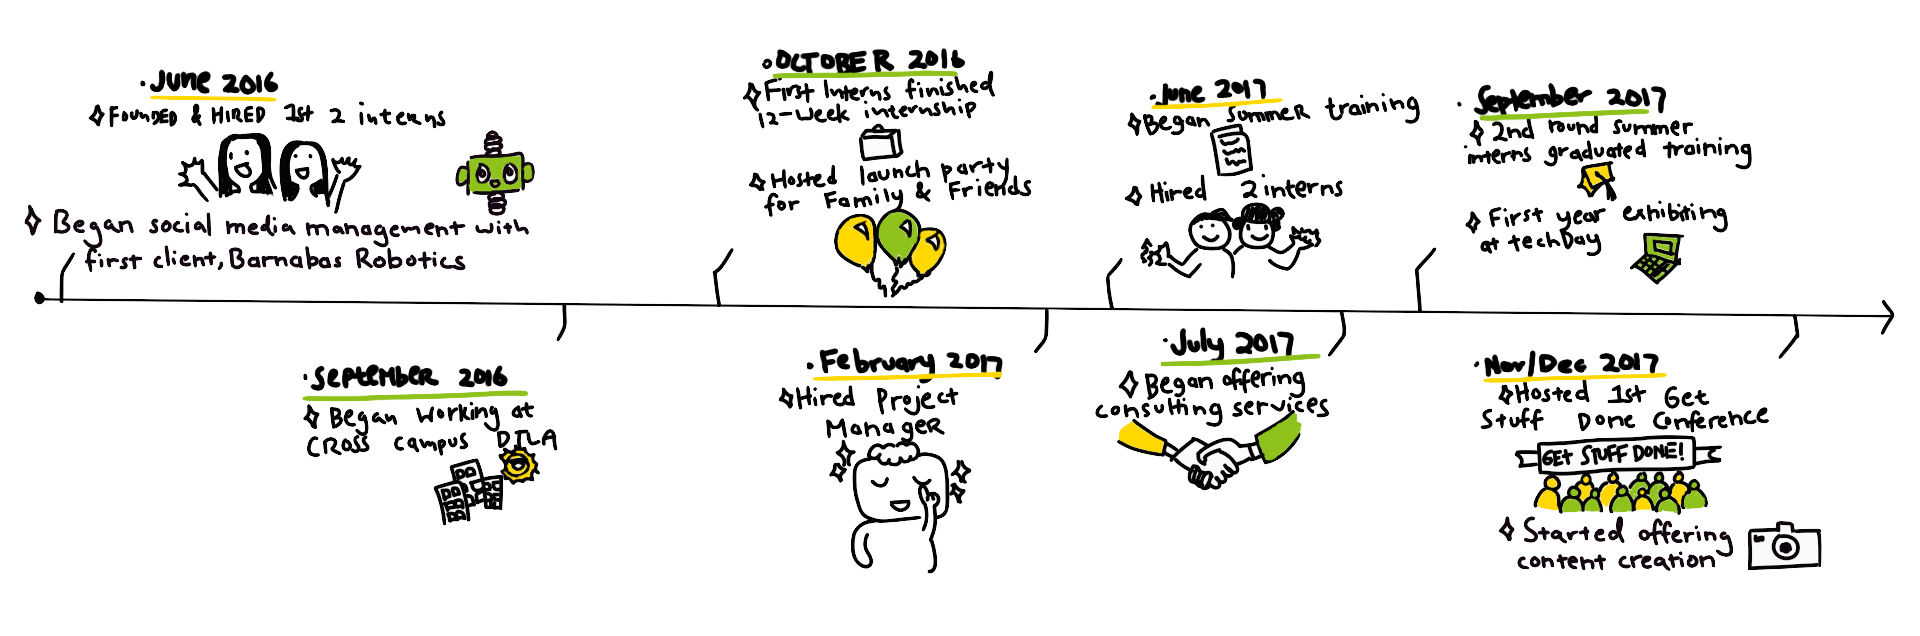 • June 2016
Founded & Hired 1st 2 interns
Began social media management with
first client, Barnabas Robotics
• September 2016
Began working at
Cross Campus DTLA
• October 2016
First Interns finished
12-week internship
Hosted launch party
for Family & Friends
• February 2017
Hired Project
Manager
• June 2017
Began summer training
Hired 2 interns
• July 2017
Began offering
consulting services
• September 2017
2nd round summer
interns graduated training
First year exhibiting
at techDay
• Nov/Dec 2017
Hosted 1st Get
Stuff Done Conference
GET STUFF DONE!
Started offering
content creation